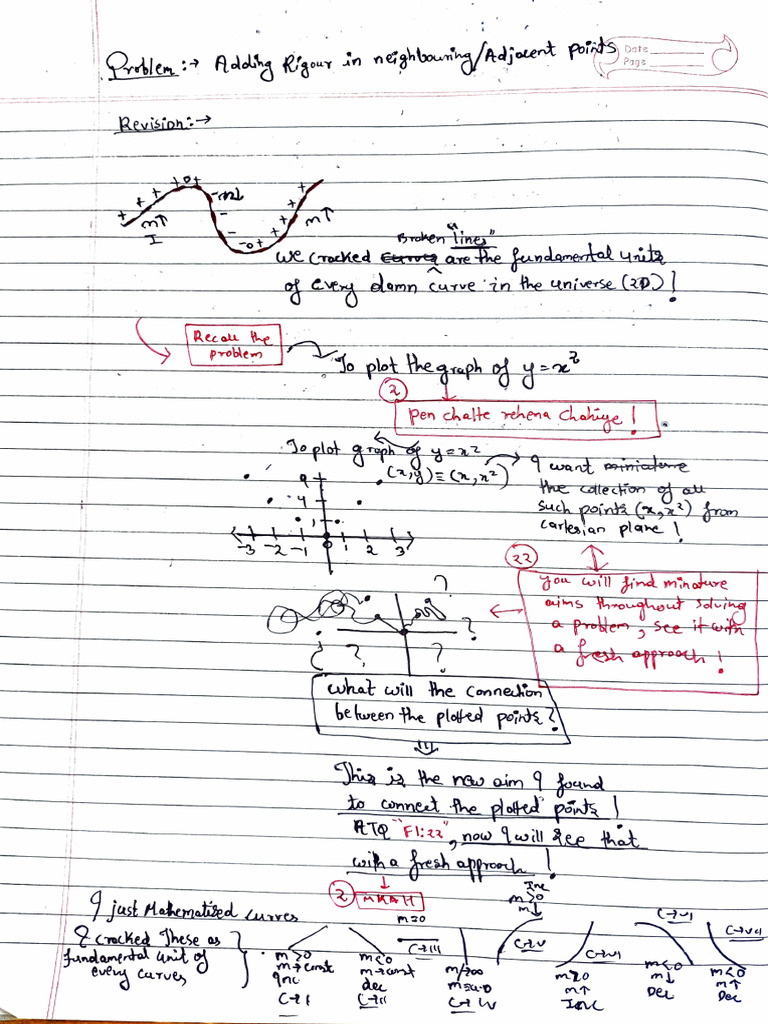 Problem:→ Adding Rigour in neighbouring/Adjacent points
Date
Page
Revision:→
+ + + + 0 + - m↓ - - - 0 + + + + +
m↑
I
m↑
Broken "lines"
We cracked curves are the fundamental units
of every damn curve in the universe (2D)!
Recall the
problem
To plot the graph of y=x²
2
Pen chalte rehena chahiye!
To plot graph of y=x²
(x,y)≡(x,x²)
I want miniature
the collection of all
such points (x,x²) from
cartesian plane!
9
4
1
-3 -2 -1 0 1 2 3
22
You will find minature
aims throughout solving
a problem, see it with
a fresh approach!
? ? ? ?
What will the connection
between the plotted points?
This is the new aim I found
to connect the plotted points!
ATQ "F1:22", now I will see that
with a fresh approach!
2
MKAH
I just Mathematized curves
& cracked These as
fundamental unit of
every curves
m>0
m→const
Inc
C→I
m<0
m→const
dec
C→II
m=0
C→III
m→∞
m=N.D
C→IV
Inc
m>0
m↓
C→V
C→VI
m>0
m↑
INC
C→VI
m<0
m↓
Dec
C→VII
m<0
m↑
Dec